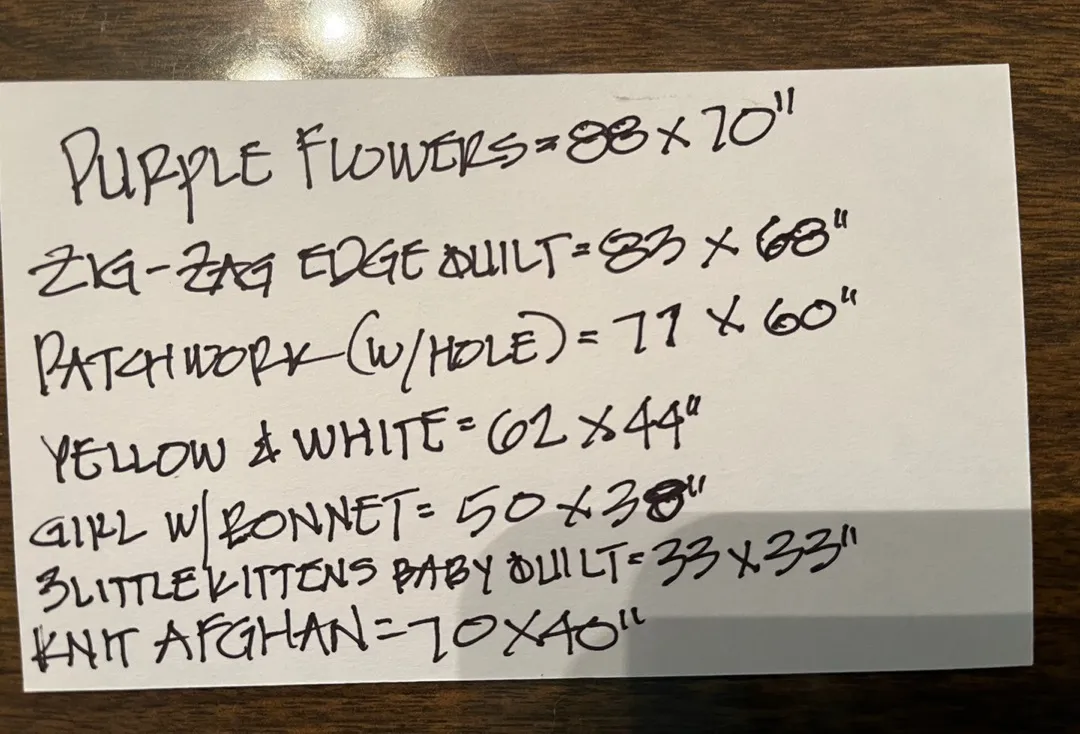 PURPLE FLOWERS = 88 x 70"
ZIG-ZAG EDGE QUILT = 83 x 68"
PATCHWORK (W/HOLE) = 77 x 60"
YELLOW & WHITE = 62 x 44"
GIRL W/ BONNET = 50 x 38"
3 LITTLE KITTENS BABY QUILT = 33 x 33"
KNIT AFGHAN = 70 x 40"